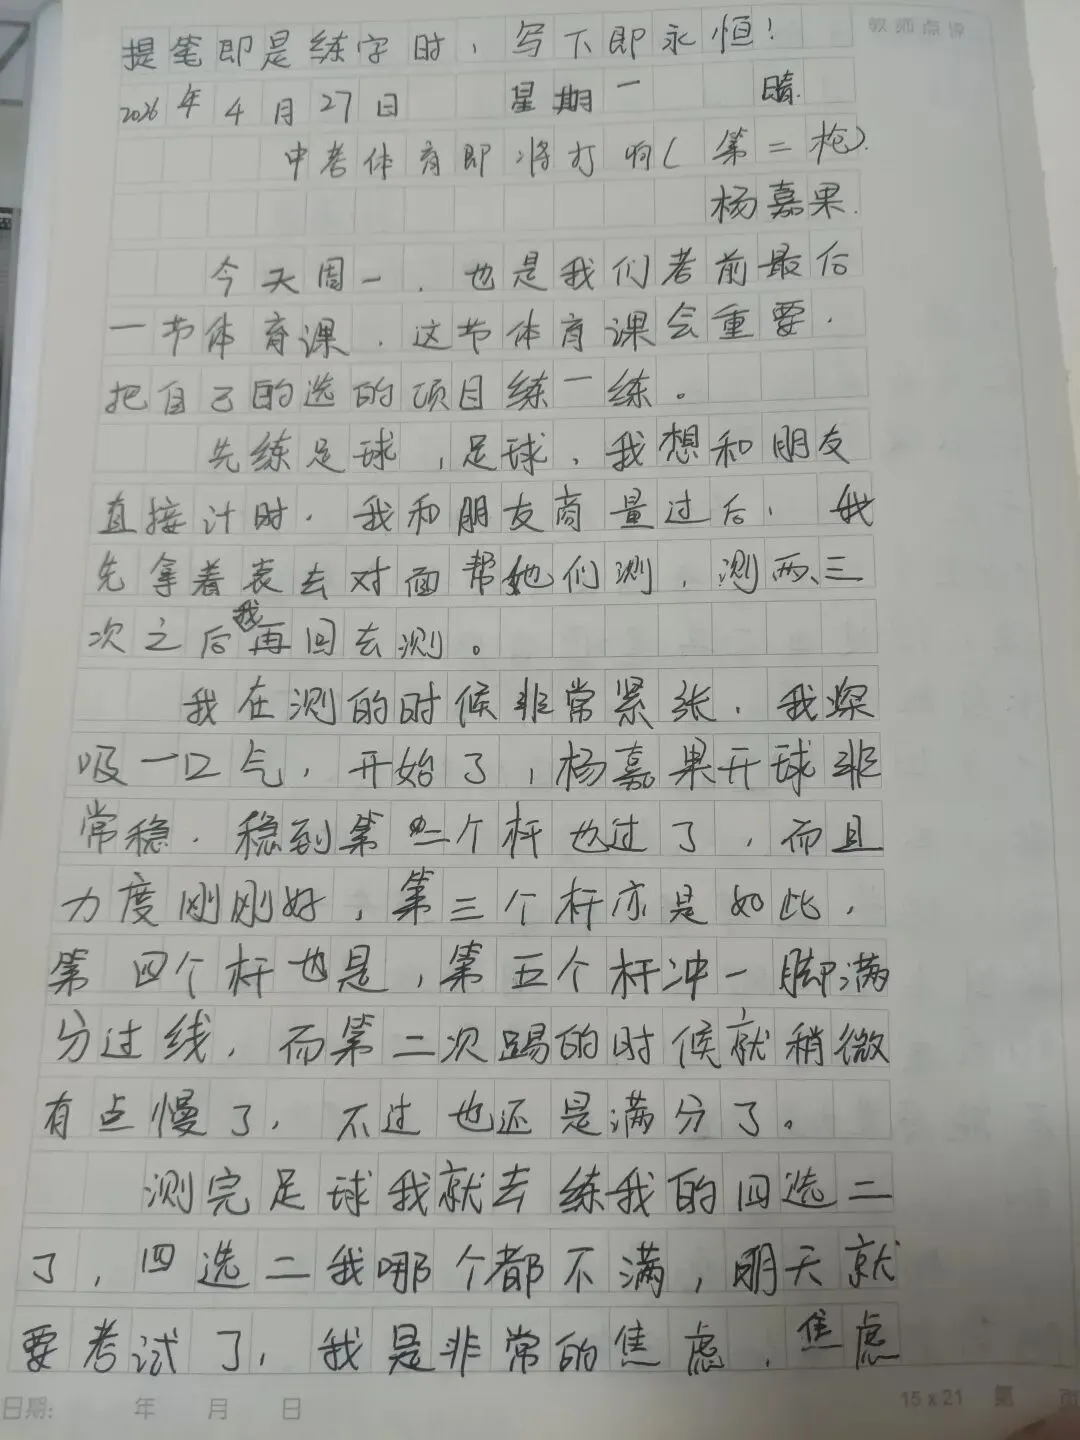 提笔即是练字时，写下即永恒！
教师点评
2026年4月27日 星期一 晴.
中考体育即将打响(第二枪).
杨嘉果.
今天周一，也是我们考前最后
一节体育课，这节体育课会重要.
把自己的选的项目练一练。
先练足球，足球，我想和朋友
直接计时.我和朋友商量过后，我
先拿着表去对面帮她们测，测两、三
次之后我再回去测。
我在测的时候非常紧张.我深
吸一口气，开始了，杨嘉果开球非
常稳.稳到第二个杆也过了，而且
力度刚刚好，第三个杆亦是如此，
第四个杆也是，第五个杆冲一脚满
分过线，而第二次踢的时候就稍微
有点慢了，不过也还是满分了。
测完足球我就去练我的四选二
了，四选二我哪个都不满，明天就
要考试了，我是非常的焦虑，焦虑
日期: 年 月 日 15x21 第 页